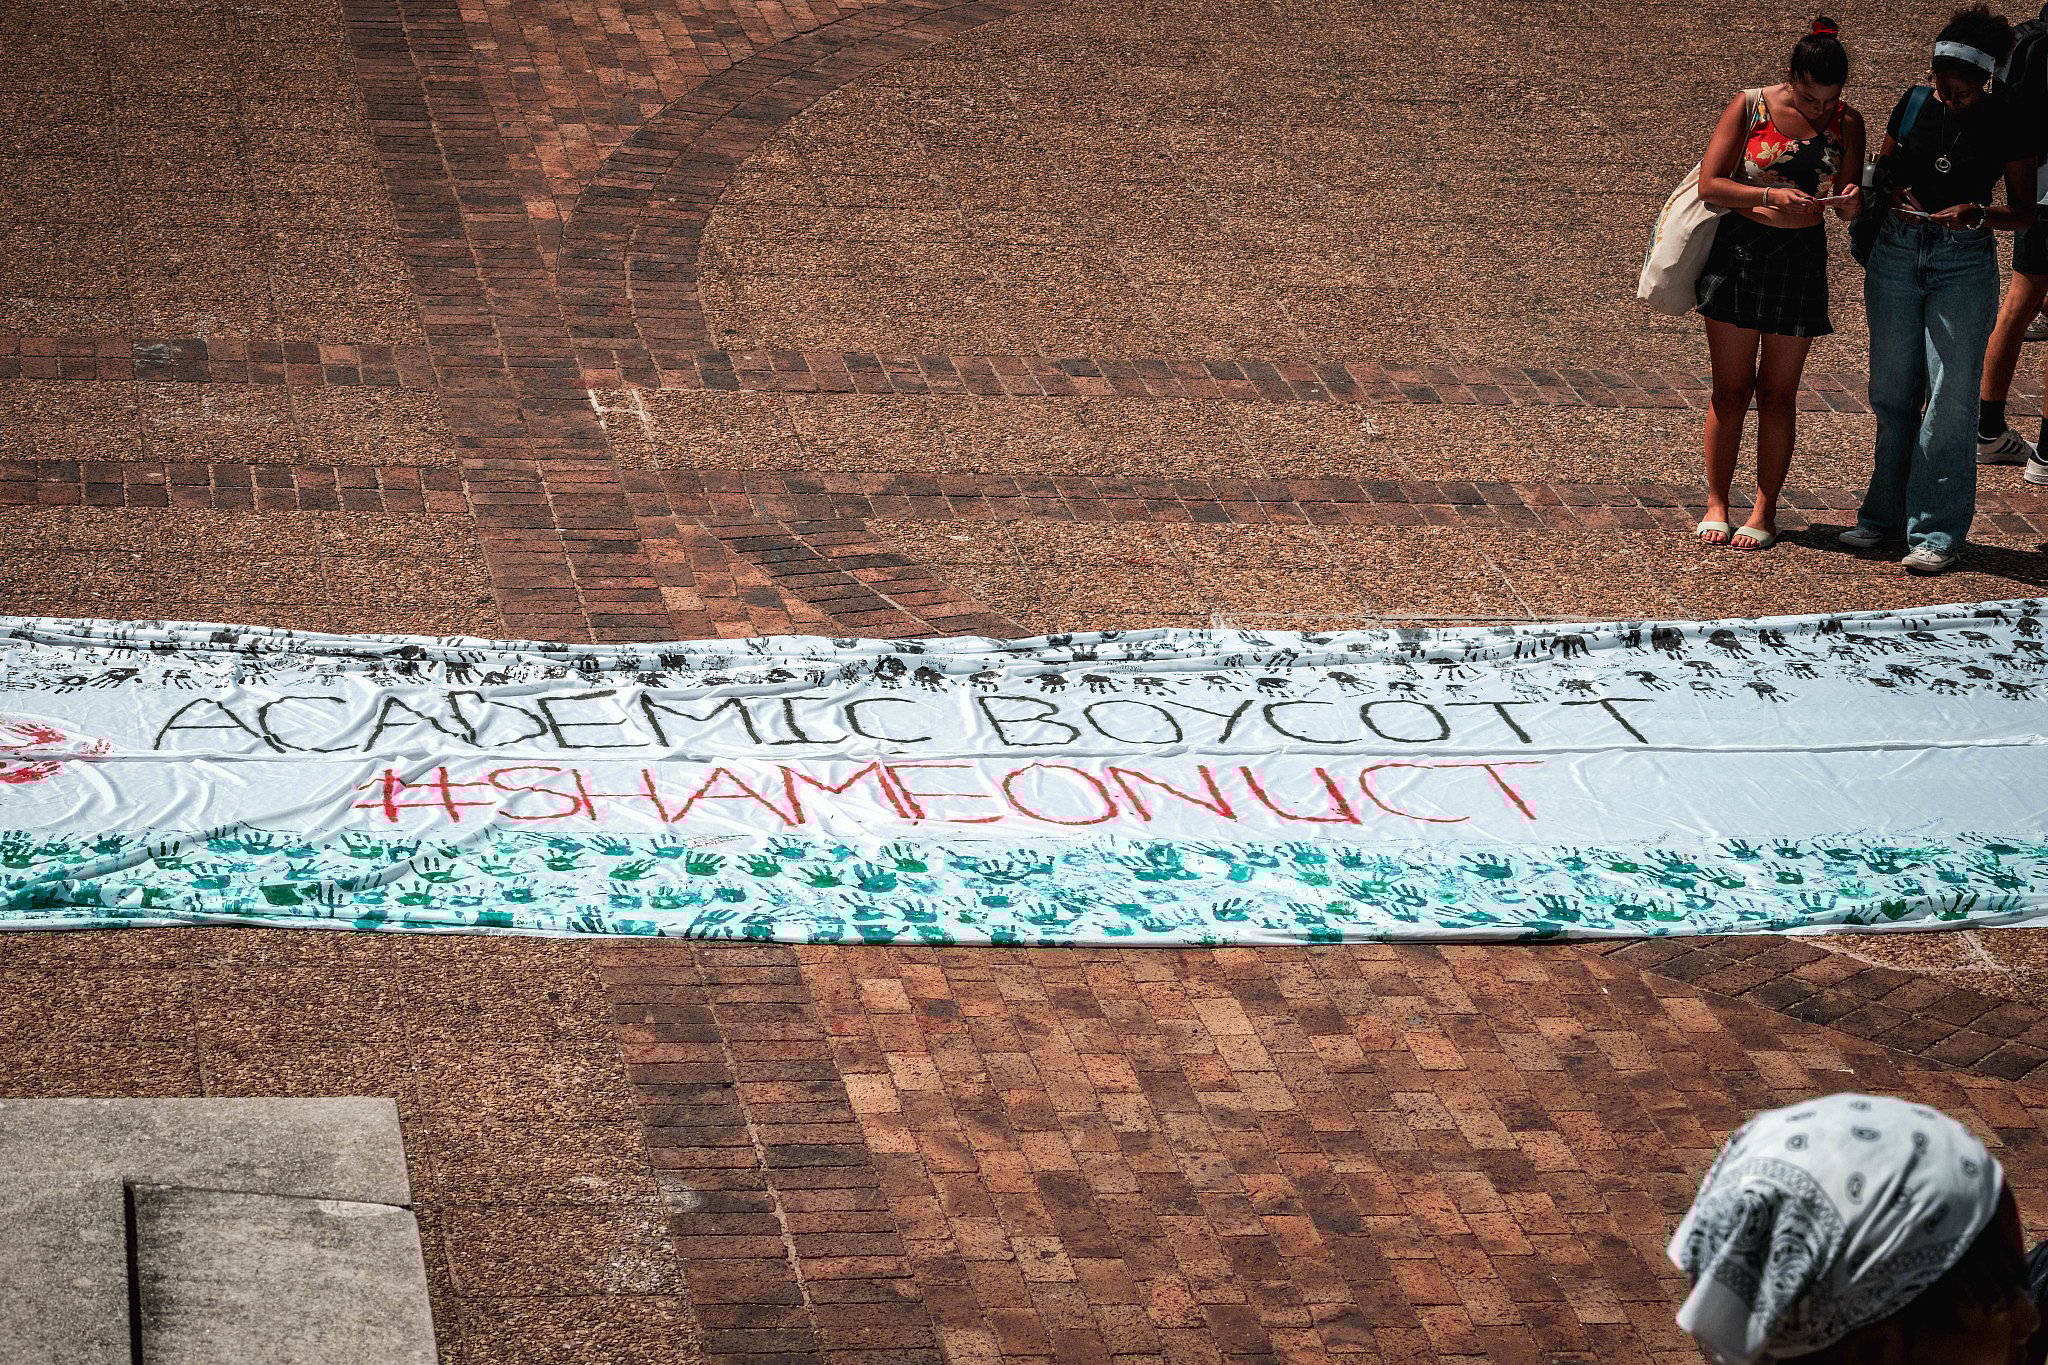 ACADEMIC BOYCOTT
#SHAMEONUCT